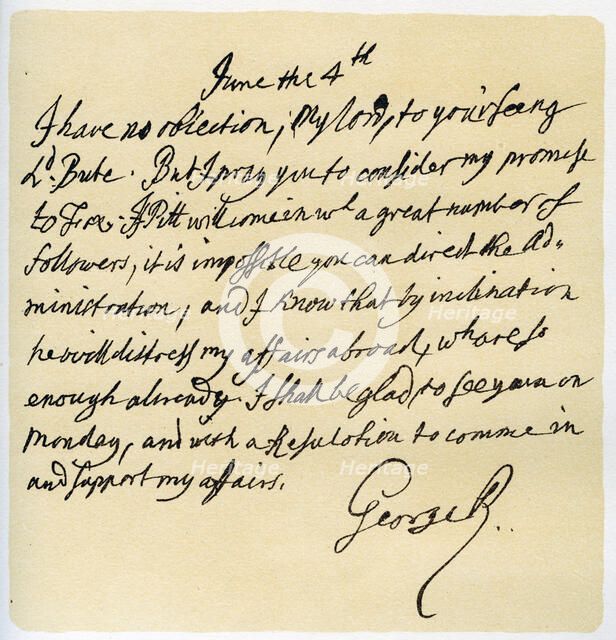 June the 4th
I have no obiection, My lord, to your seeng
Ld. Bute. But I pray you to consider my promise
to Fox. If Pitt will come in wh a great number of
followers, it is impossible you can direct the Ad=
ministration, and I know that by inclination
he will distress my affairs abroad, whare so
enough already. I shall be glad to see you on
Monday, and with a Resulotion to comme in
and support my affairs.
George R.
Heritage
Heritage
Heritage
Heritage
Heritage
Heritage